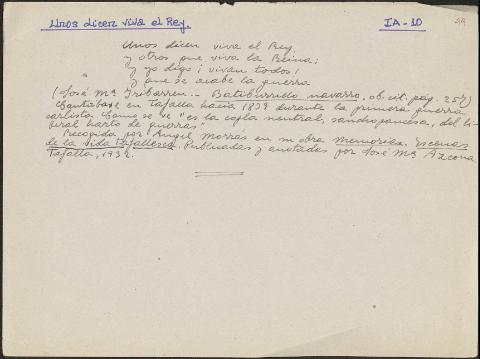 Unos dicen viva el Rey. IA-10
Unos dicen viva el Rey
y otros que viva la Reina;
y yo digo ¡vivan todos!
y que se acabe la guerra
(José Mª Iribarren.- Batiburrillo navarro, ob. cit. pag. 257)
Cantábase en Tafalla hacia 1839 durante la primera guerra
carlista. Como se ve "es la copla neutral, sanchopancesca, del li-
beral harto de guerras"
Recogida por Angel Morrás en su obra Memorias. Escenas
de la vida tafallesa. Publicadas y anotadas por José Mª Azcona
Tafalla, 1932.